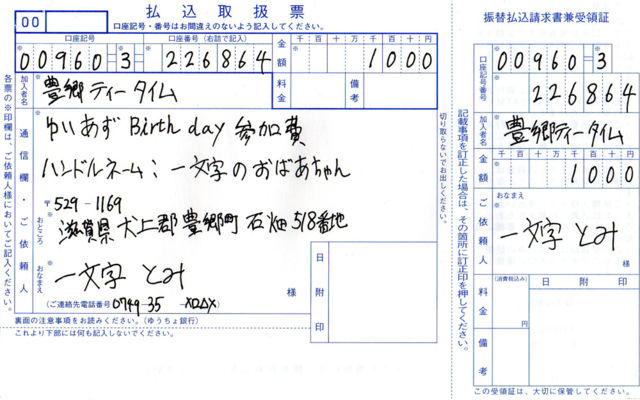 00
払込取扱票
口座記号・番号はお間違えのないよう記入してください。
口座記号
口座番号(右詰で記入)
00960-3-226864
金額
千百十万千百十円
1000
加入者名
豊郷ティータイム
料金
備考
通信欄・ご依頼人
ゆいあずBirthday参加費
ハンドルネーム:一文字のおばあちゃん
〒529-1169
おところ
滋賀県犬上郡豊郷町石畑518番地
おなまえ
一文字とみ
様
(ご連絡先電話番号 0749-35-XOΔX)
日附印
裏面の注意事項をお読みください。(ゆうちょ銀行)
これより下部には何も記入しないでください。
各票の※印欄は、ご依頼人様においてご記入ください。
切り取らないでお出しください。
振替払込請求書兼受領証
口座記号番号
00960-3
226864
加入者名
豊郷ティータイム
金額
千百十万千百十円
1000
ご依頼人
おなまえ
一文字とみ
様
(消費税込み)
料金
円
日附印
備考
記載事項を訂正した場合は、その箇所に訂正印を押してください。
この受領証は、大切に保管してください。